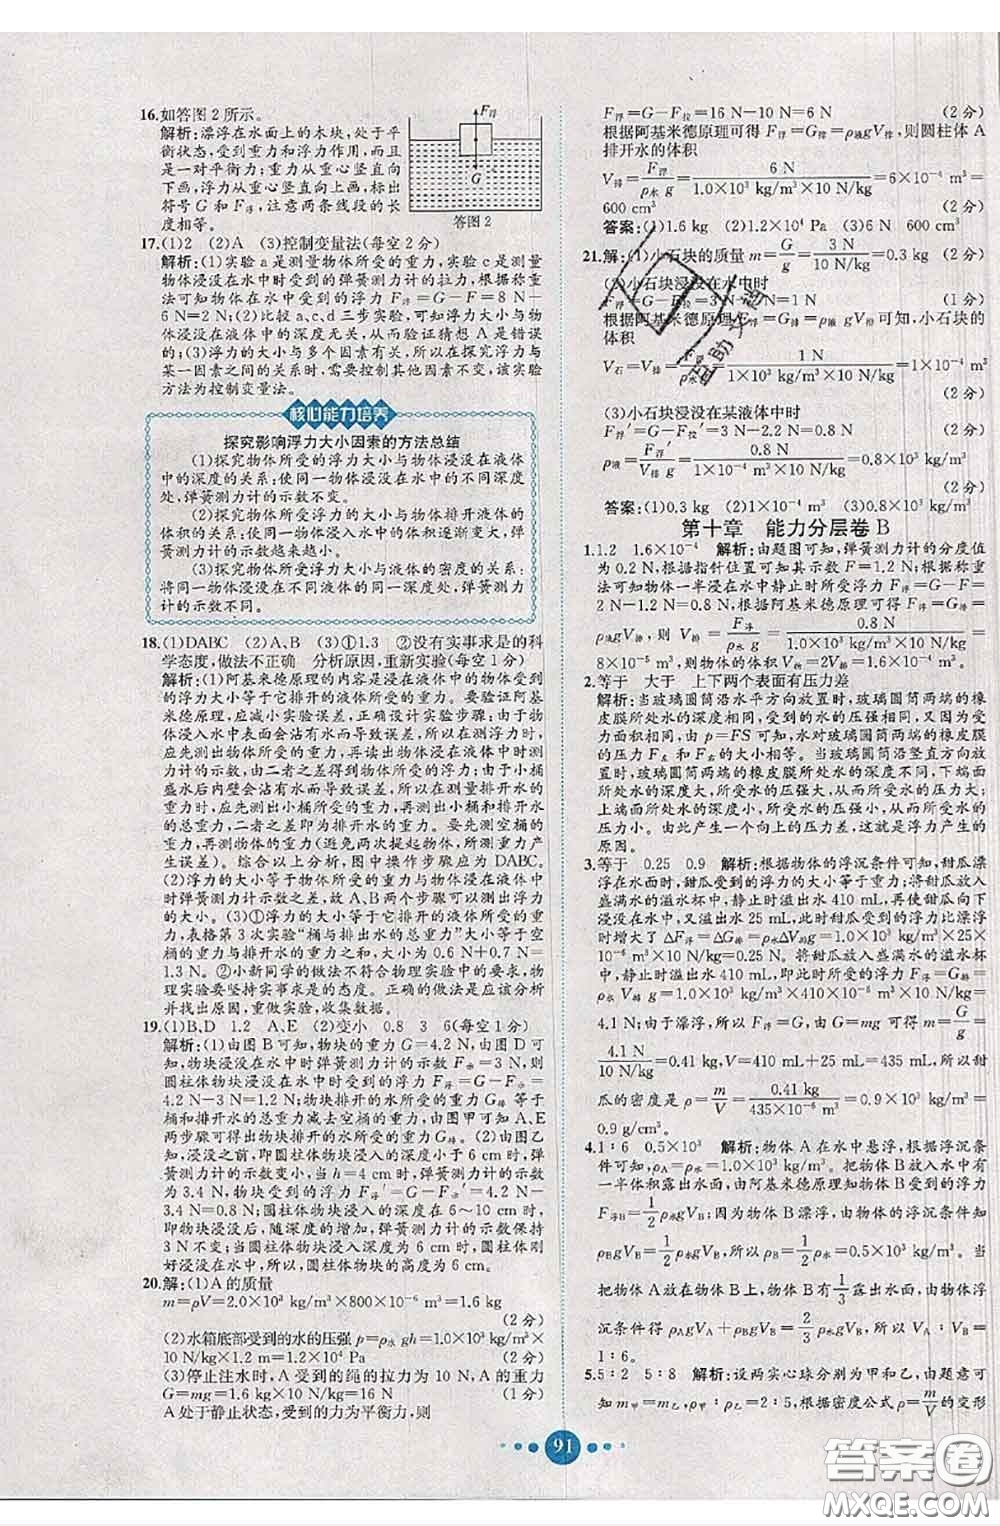 16.如答图2所示。
解析:漂浮在水面上的木块,处于平
衡状态,受到重力和浮力作用,而且
是一对平衡力;重力从重心竖直向
下画,浮力从重心竖直向上画,标出
符号G和F浮,注意两条线段的长
度相等。
F浮
G
答图2
17.(1)2 (2)A (3)控制变量法(每空2分)
解析:(1)实验a是测量物体所受的重力,实验c是测量
物体浸没在水中时受到的弹簧测力计的拉力,根据称
重法可知物体在水中受到的浮力F浮=G-F=8 N-
6 N=2 N;(2)比较a,c,d三步实验,可知浮力大小与物
体浸没在水中的深度无关,从而验证猜想A是错误
的;(3)浮力的大小与多个因素有关,所以在探究浮力与
某一因素之间的关系时,需要控制其他因素不变,该实验
方法为控制变量法。
核心能力培养
探究影响浮力大小因素的方法总结
(1)探究物体所受的浮力大小与物体浸没在液体
中的深度的关系:使同一物体浸没在水中的不同深度
处,弹簧测力计的示数不变。
(2)探究物体所受浮力的大小与物体排开液体的
体积的关系:使同一物体浸入水中的体积逐渐变大,弹
簧测力计的示数越来越小。
(3)探究物体所受浮力大小与液体的密度的关系:
将同一物体浸没在不同液体的同一深度处,弹簧测力
计的示数不同。
18.(1)DABC (2)A、B (3)①1.3 ②没有实事求是的科
学态度,做法不正确 分析原因,重新实验(每空1分)
解析:(1)阿基米德原理的内容是浸在液体中的物体受
到的浮力大小等于它排开的液体所受的重力。要验证阿基
米德原理,应减小实验误差,正确设计实验步骤:由于物
体浸入水中表面会沾有水而导致误差,所以在实验时,
应先测出物体所受的重力,再读出物体浸在液体中时测
力计的示数,由二者之差得到物体所受的浮力;由于小桶
盛水后内壁会沾有水而导致误差,所以在测量排开水的
重力时,应先测出空桶的重力,再测出桶与排开水的总
重力,二者之差即为排开水的重力。要先测空桶的重
力,再测物体的重力(避免两次提起物体测重力时产生
误差)。综合以上分析,图中操作步骤应为DABC。
(2)浮力的大小等于物体的重力与物体浸在液体中时测
力计示数之差,故A、B两个步骤可以测出浮力的
大小。(3)①浮力的大小等于物体排开的水所受的重
力,表格第3次实验“桶与排出水的总重力”大小等于空
桶的重力与所受的浮力之和,大小为0.6 N+0.7 N=
1.3 N。②小新同学的做法不符合物理实验中的要求,物
理实验要坚持实事求是的态度。正确的做法是应该分析
并找出原因,重做实验,收集数据。
19.(1)B,D 1.2 A,E (2)变小 0.8 3 6(每空1分)
解析:(1)由图B可知,物块的重力G=4.2 N,由图D可
知,物块浸没在水中时弹簧测力计的示数F示=3 N,则
圆柱体物块浸没在水中时受到的浮力F浮=G-F示=
4.2 N-3 N=1.2 N。物块排开水的所受的重力G排等于
桶和排开水的总重力减去空桶的重力,由图甲可知A、E
两步骤可得出物块排开的水所受的重力G排。(2)由图乙
知,浸没之前,即圆柱体物块浸入的深度小于6 cm时,弹簧
测力计的示数变小,当h=4 cm时,弹簧测力计的示数
为3.4 N,物块受到的浮力F浮′=G-F示′=4.2 N-
3.4 N=0.8 N;圆柱体物块浸入的深度在6~10 cm时,
即物块浸没后,随深度的增加,弹簧测力计的示数保持
3 N不变;当圆柱体物块浸入深度为6 cm时,圆柱体刚
好浸没在水中,所以圆柱体物块的高度为6 cm。
20.解:(1)A的质量
m=ρV=2.0×10³ kg/m³×800×10⁻⁶ m³=1.6 kg
(2分)
(2)水箱底部受到的水的压强p=ρ水gh=1.0×10³ kg/m³×
10 N/kg×1.2 m=1.2×10⁴ Pa (2分)
(3)停止注水时,A受到的绳的拉力为10 N,A的重力
G=mg=1.6 kg×10 N/kg=16 N (1分)
A处于静止状态,受到的力为平衡力,则
F浮=G-F拉=16 N-10 N=6 N (2分)
根据阿基米德原理可得F浮=G排=ρ液gV排,则圆柱体A
排开水的体积
V排=F浮/ρ水g=6 N/1.0×10³ kg/m³×10 N/kg=6×10⁻⁴ m³=
600 cm³ (2分)
答案:(1)1.6 kg (2)1.2×10⁴ Pa (3)6 N 600 cm³
21.解:(1)小石块的质量m=G/g=3 N/10 N/kg=0.3 kg (2分)
(2)小石块浸没在水中时
F浮=G-F拉=3 N-2 N=1 N (1分)
根据阿基米德原理F浮=ρ液gV排可知,小石块的
体积
V石=V排=F浮/ρ水g=1 N/1.0×10³ kg/m³×10 N/kg=1×10⁻⁴ m³
(2分)
(3)小石块浸没在某液体中时
F浮′=G-F拉′=3 N-2.2 N=0.8 N (2分)
ρ液=F浮′/V排g=0.8 N/1×10⁻⁴ m³×10 N/kg=0.8×10³ kg/m³
(2分)
答案:(1)0.3 kg (2)1×10⁻⁴ m³ (3)0.8×10³ kg/m³
第十章 能力分层卷B
1.1.2 1.6×10⁻⁴ 解析:由题图可知,弹簧测力计的分度值
为0.2 N,根据指针位置可知其示数F=1.2 N;根据称重
法可知物体一半浸在水中静止时所受浮力F浮=G-F=
2 N-1.2 N=0.8 N,根据阿基米德原理可知,F浮=
ρ水gV排,则V排=F浮/ρ水g=0.8 N/1.0×10³ kg/m³×10 N/kg=
8×10⁻⁵ m³,则物体的体积V物=2V排=1.6×10⁻⁴ m³。
2.等于 大于 上下两个表面有压力差
解析:当玻璃圆筒沿水平方向放置时,玻璃圆筒两端的橡
皮膜所处水的深度相同,受到的水的压强相同,又因为受力
面积相同,由p=FS可知,水对玻璃圆筒两端的橡皮膜
的压力F左和F右的大小相等。当玻璃圆筒沿竖直方向放
置时,玻璃圆筒两端的橡皮膜所处水的深度不同,下端面
所处水的深度大,所受的压强大,从而所受的压力大;
上端面所处水的深度小,所受的压强小,从而所受的压
力小。由此产生一个向上的压力差,这就是浮力产生的
原因。
3.等于 0.25 0.9 解析:根据物体的浮沉条件可知,甜瓜漂
浮在水面时,甜瓜受到的浮力等于重力;将甜瓜放入
盛满水的溢水杯中,静止时溢出水410 mL,再使甜瓜向下
浸没在水中,又溢出水25 mL,此时甜瓜受到的浮力比漂浮
时增大了ΔF浮=ΔG排=ρ水ΔV排g=1.0×10³ kg/m³×25×
10⁻⁶ m³×10 N/kg=0.25 N。将甜瓜放入盛满水的溢水杯
中,静止时溢出水410 mL,即此时所受的浮力F浮=G排=
ρ水V排g=1.0×10³ kg/m³×410×10⁻⁶ m³×10 N/kg=
4.1 N;由于漂浮,所以F浮=G,由G=mg可得m=G/g=
4.1 N/10 N/kg=0.41 kg,V=410 mL+25 mL=435 mL,所以甜
瓜的密度是ρ=m/V=0.41 kg/435×10⁻⁶ m³=0.9×10³ kg/m³=
0.9 g/cm³。
4.1∶6 0.5×10³ 解析:物体A在水中悬浮,根据浮沉条
件可知ρA=ρ水=1.0×10³ kg/m³。把物体B放入水中有
一半体积露出水面,由阿基米德原理知物体B受到的浮力
F浮B=1/2ρ水gVB;因为物体B漂浮,由物体的浮沉条件知
ρBgVB=1/2ρ水gVB,所以ρB=1/2ρ水=0.5×10³ kg/m³。当
把物体A放在物体B上,物体B有1/3露出水面,由物体浮
沉条件得ρAgVA+ρBgVB=2/3ρ水gVB,所以VA∶VB=
1∶6。
5.5∶2 5∶8 解析:设两实心球分别为甲和乙,由题意可
知m甲=m乙,ρ甲∶ρ乙=2∶5,根据密度公式ρ=m/V的变形
91
答案圈
MXQE.COM